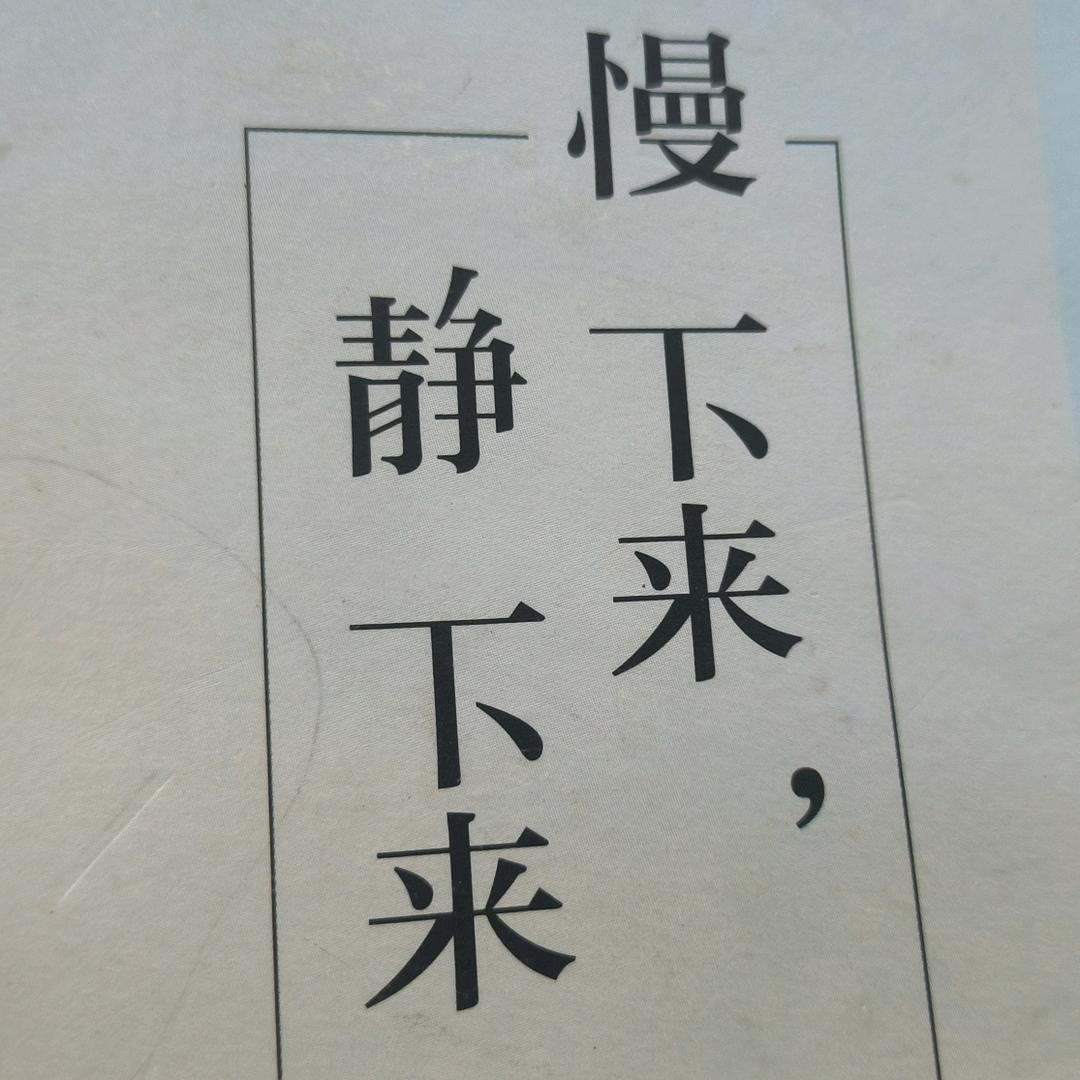 慢下来，
静下来